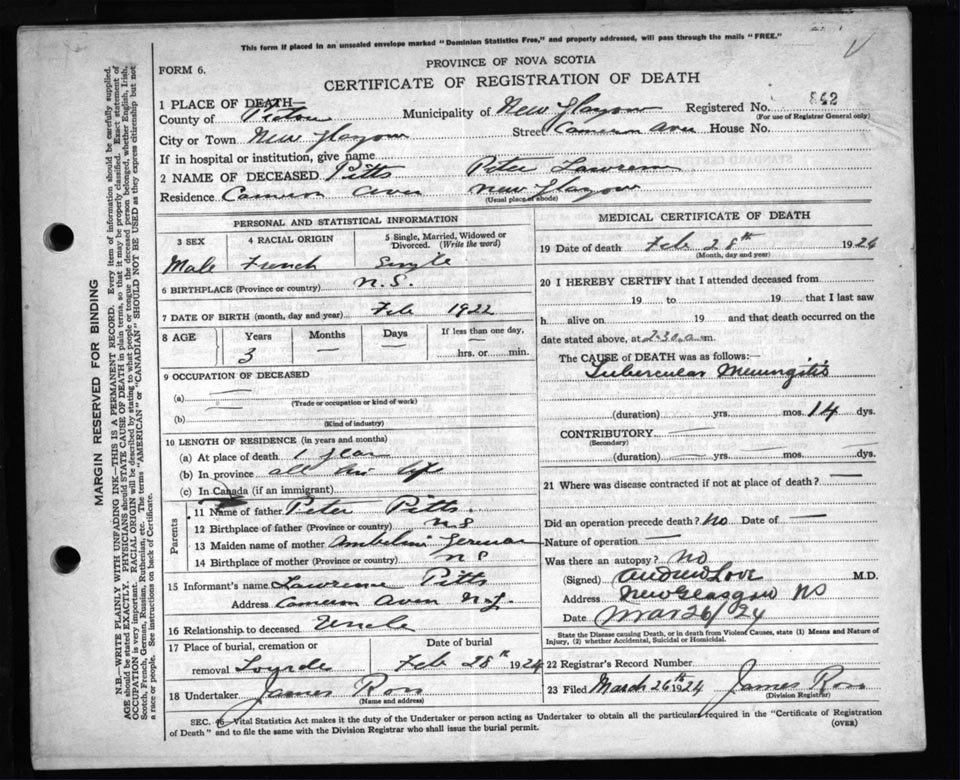 This form if placed in an unsealed envelope marked "Dominion Statistics Free," and properly addressed, will pass through the mails "FREE."
FORM 6.
PROVINCE OF NOVA SCOTIA
CERTIFICATE OF REGISTRATION OF DEATH
1 PLACE OF DEATH—
County of Pictou Municipality of New Glasgow Registered No. 862
(For use of Registrar General only)
City or Town New Glasgow Street Cameron Aven House No.
If in hospital or institution, give name
2 NAME OF DECEASED Pitts Peter
Residence Cameron Aven New Glasgow
(Usual place of abode)
PERSONAL AND STATISTICAL INFORMATION
3 SEX 4 RACIAL ORIGIN 5 Single, Married, Widowed or Divorced. (Write the word)
Male French Single
6 BIRTHPLACE (Province or country) N.S.
7 DATE OF BIRTH (month, day and year) Feb 1922
8 AGE Years Months Days If less than one day,
3 — — hrs. or min.
9 OCCUPATION OF DECEASED
(a)
(Trade or occupation or kind of work)
(b)
(Kind of industry)
10 LENGTH OF RESIDENCE (in years and months)
(a) At place of death 1 year
(b) In province all his life
(c) In Canada (if an immigrant)
Parents
11 Name of father Peter Pitts.
12 Birthplace of father (Province or country) N.S
13 Maiden name of mother German
14 Birthplace of mother (Province or country) N S
15 Informant's name Lawrence Pitts
Address Cameron Aven N.G.
16 Relationship to deceased Uncle
17 Place of burial, cremation or removal Lourde Date of burial Feb 28th 1924
18 Undertaker James Ross
(Name and address)
MEDICAL CERTIFICATE OF DEATH
19 Date of death Feb 28th 1924
(Month, day and year)
20 I HEREBY CERTIFY that I attended deceased from
19 to 19 , that I last saw
h alive on 19 and that death occurred on
date stated above, at 2.30 a m.
The CAUSE of DEATH was as follows:—
Tubercular Meningitis
(duration) yrs. mos. 14 dys.
CONTRIBUTORY
(Secondary)
(duration) yrs. mos. dys.
21 Where was disease contracted if not at place of death? —
Did an operation precede death? No Date of —
Nature of operation —
Was there an autopsy? No
(Signed) Andrew Love M.D.
Address New Glasgow NS
Date Mar 26/24
State the Disease causing Death, or in death from Violent Causes, state (1) Means and Nature of
Injury, (2) whether Accidental, Suicidal or Homicidal.
22 Registrar's Record Number
23 Filed March 26th 1924 James Ross
(Division Registrar)
SEC. 6—Vital Statistics Act makes it the duty of the Undertaker or person acting as Undertaker to obtain all the particulars required in the "Certificate of Registration
of Death" and to file the same with the Division Registrar who shall issue the burial permit. (OVER)
MARGIN RESERVED FOR BINDING
N.B.—WRITE PLAINLY WITH UNFADING INK—THIS IS A PERMANENT RECORD. Every item of information should be carefully supplied.
AGE should be stated EXACTLY. PHYSICIANS should STATE CAUSE OF DEATH in plain terms, so that it may be properly classified. Exact statement of
OCCUPATION is very important. RACIAL ORIGIN will be described by stating to what people or tongue the deceased person belonged, whether English, Irish,
Scotch, French, German, Russian, Ruthenian, etc. The terms "AMERICAN" or "CANADIAN" SHOULD NOT BE USED as they express citizenship but not
a race or people. See instructions on back of Certificate.